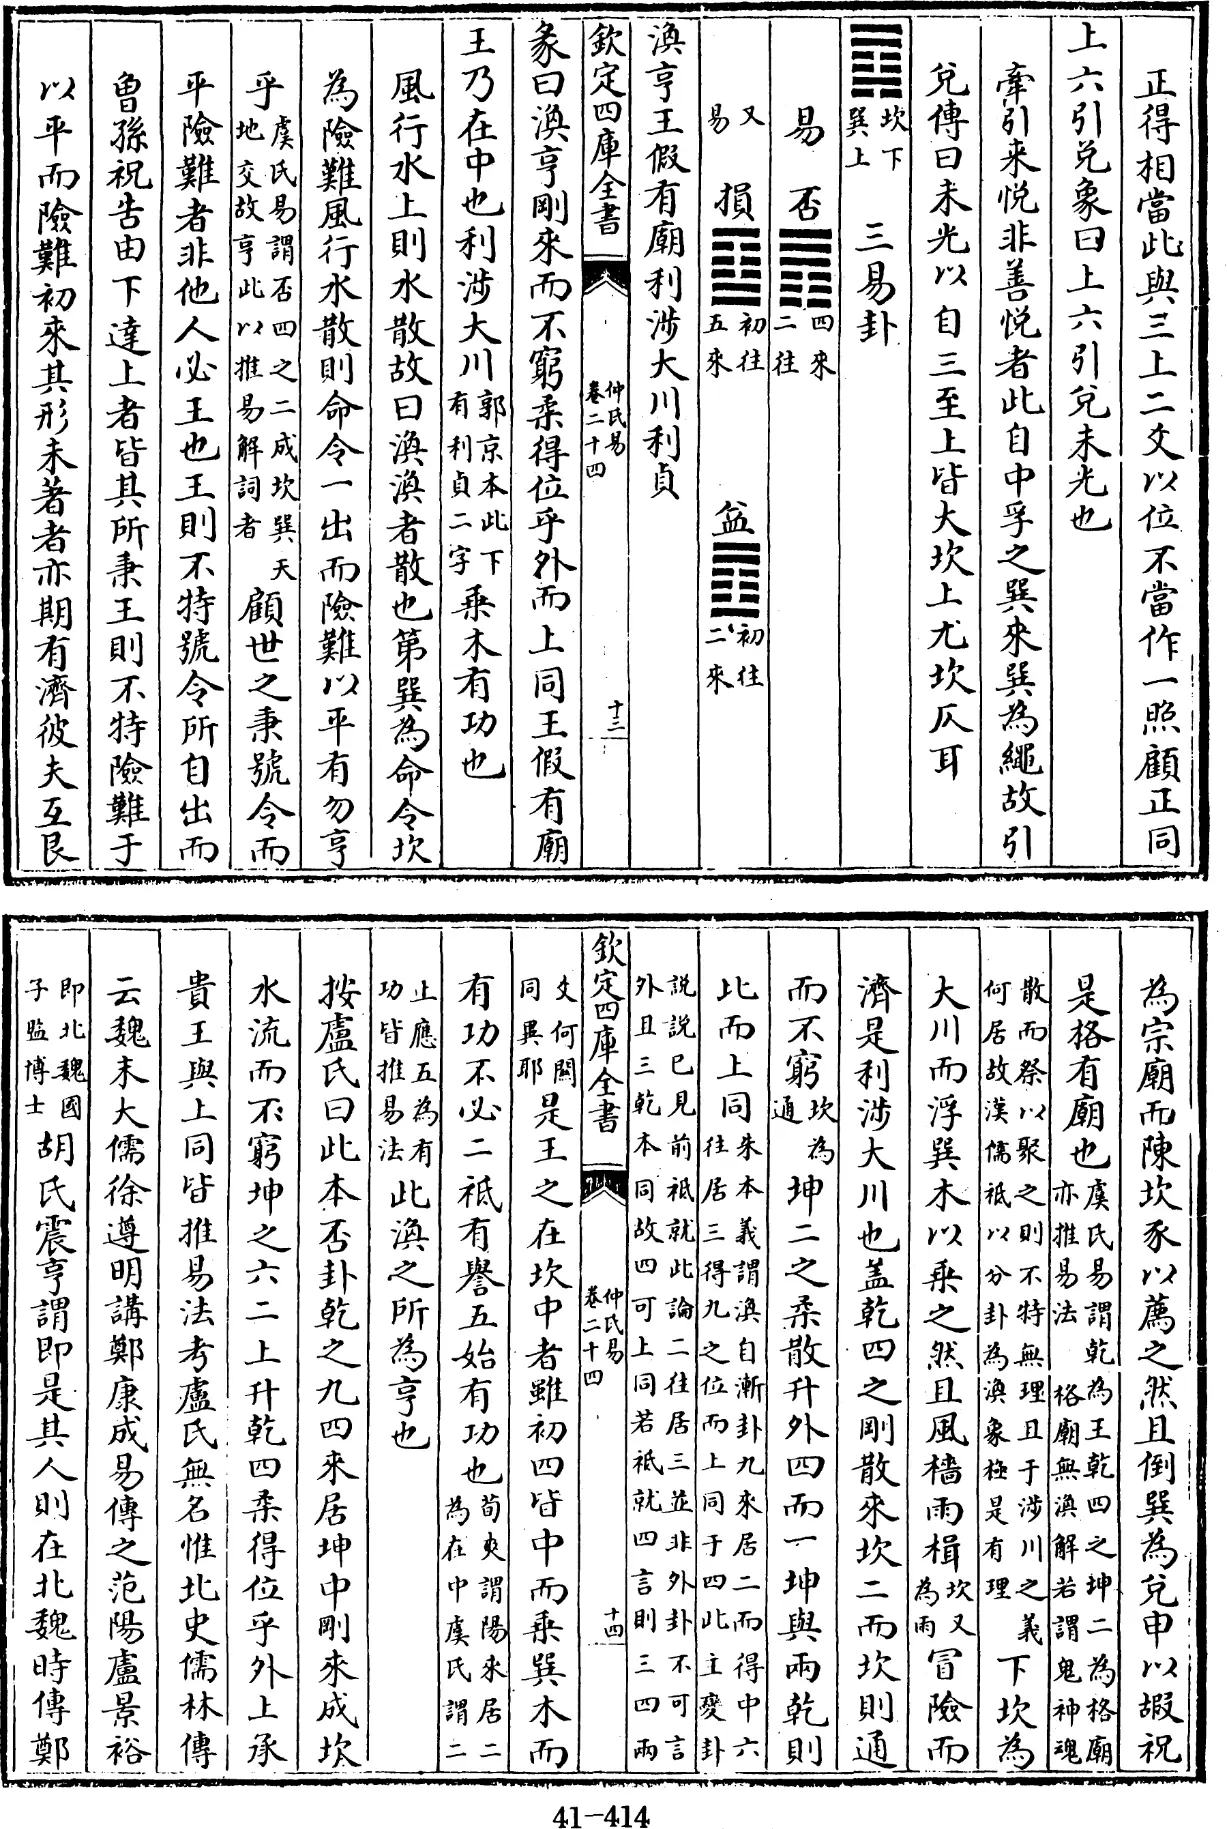 正得相當此與三上二爻以位不當作一照顧正同
上六引兌象曰上六引兌未光也
牽引来悦非善悦者此自中孚之巽來巽為繩故引
兌傳曰未光以自三至上皆大坎上尤坎仄耳
坎下巽上 三易卦
易 否 四來二往
又易 損 初往五來 益 初往二來
渙亨王假有廟利涉大川利貞
欽定四庫全書 仲氏易卷二十四 十三
彖曰渙亨剛來而不窮柔得位乎外而上同王假有廟
王乃在中也利涉大川郭京本此下有利貞二字乗木有功也
風行水上則水散故曰渙渙者散也第巽為命令坎
為險難風行水散則命令一出而險難以平有勿亨
乎虞氏易謂否四之二成坎巽天地交故亨此以推易解詞者顧世之秉號令而
平險難者非他人必王也王則不特號令所自出而
曾孫祝告由下達上者皆其所秉王則不特險難于
以平而險難初來其形未著者亦期有濟彼夫互艮
為宗廟而陳坎豕以薦之然且倒巽為兌申以嘏祝
是格有廟也虞氏易謂乾為王乾四之坤二為格廟亦推易法 格廟無渙解若謂鬼神魂
散而祭以聚之則不特無理且于涉川之義何居故漢儒祗以分卦為渙象極是有理下坎為
大川而浮巽木以乗之然且風檣雨楫坎又為雨冒險而
濟是利涉大川也蓋乾四之剛散來坎二而坎則通
而不窮坎為通坤二之柔散升外四而一坤與兩乾則
比而上同朱本義謂渙自漸卦九來居二而得中六往居三得九之位而上同于四此主變卦
説説已見前祗就此論二往居三並非外卦不可言外且三乾本同故四可上同若祗就四言則三四兩
欽定四庫全書 仲氏易卷二十四 十四
爻何闗同異耶是王之在坎中者雖初四皆中而乗巽木而
有功不必二祗有譽五始有功也荀爽謂陽來居二為在中虞氏謂二
止應五為有功皆推易法此渙之所為亨也
按盧氏曰此本否卦乾之九四來居坤中剛來成坎
水流而不窮坤之六二上升乾四柔得位乎外上承
貴王與上同皆推易法考盧氏無名惟北史儒林傳
云魏末大儒徐遵明講鄭康成易傳之范陽盧景裕
即北魏國子監博士胡氏震亨謂即是其人則在北魏時傳鄭
41-414